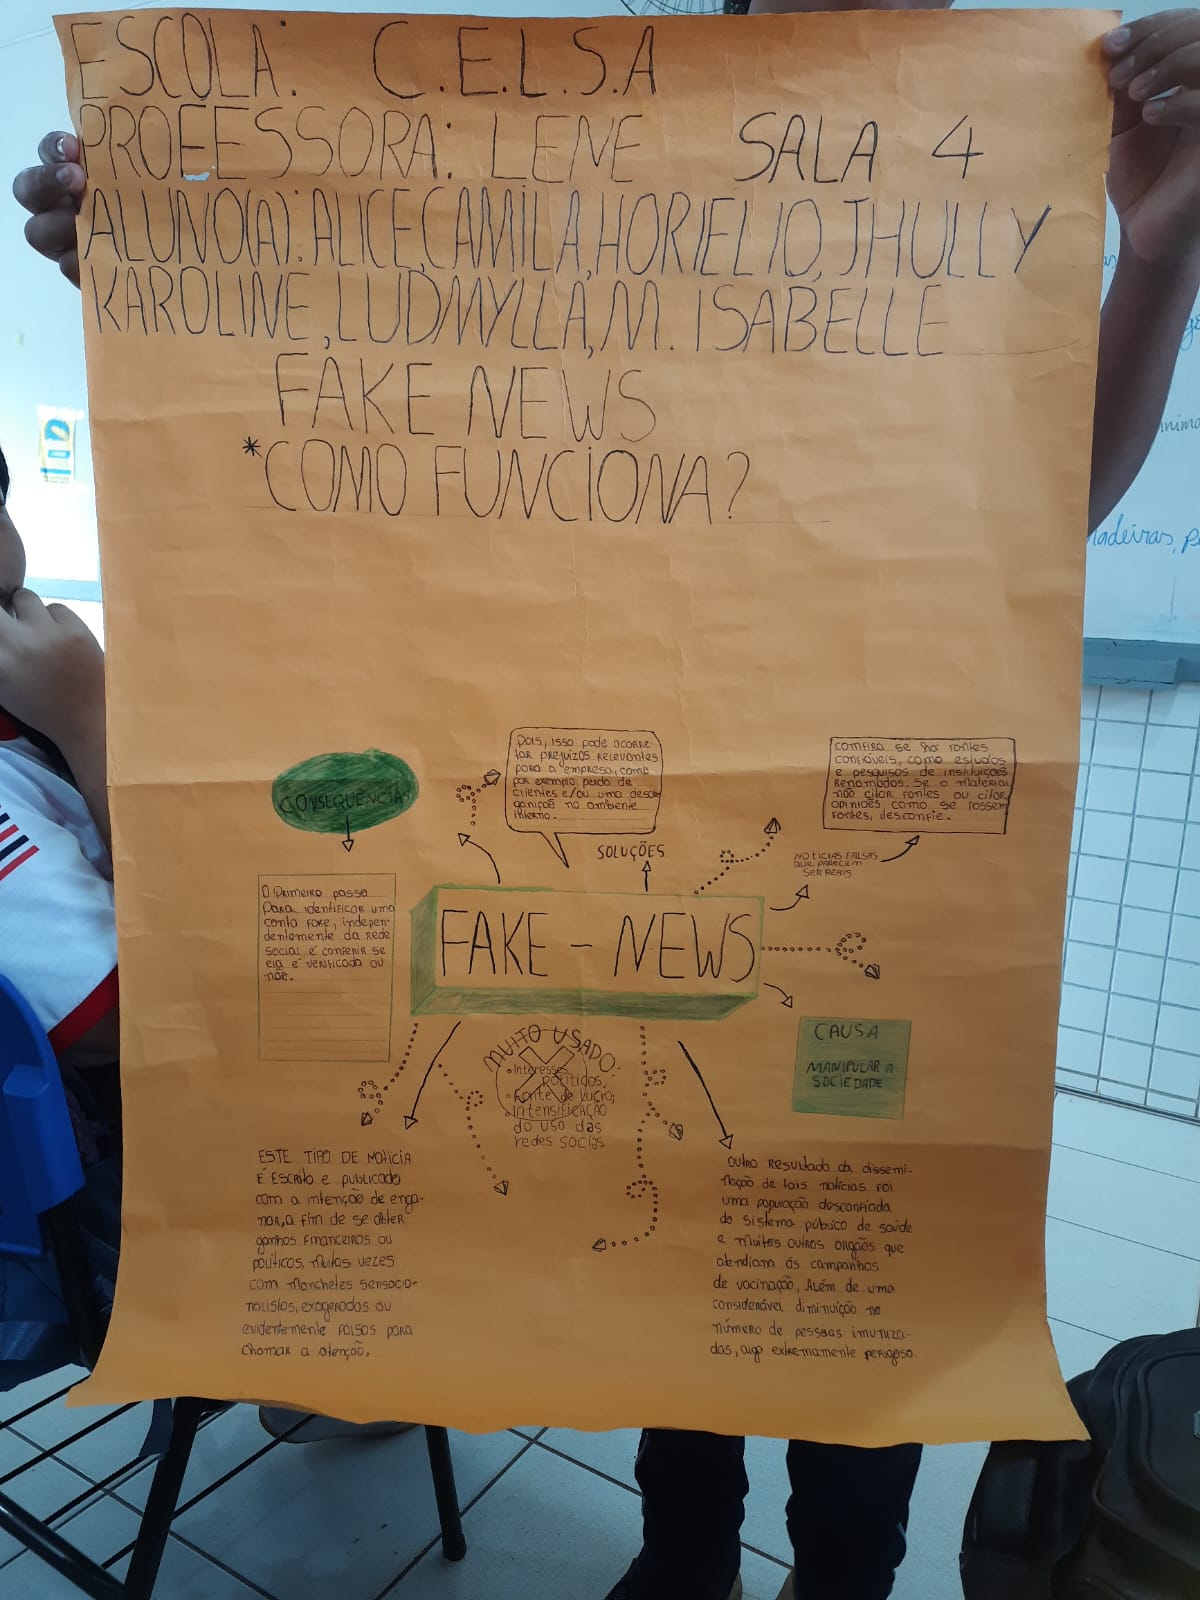 ESCOLA: C.E.L.S.A
PROFESSORA: LENE SALA 4
ALUNO(A): ALICE, CAMILA, HORIELIO, JHULLY
KAROLINE, LUDMYLLA, M. ISABELLE
FAKE NEWS
*COMO FUNCIONA?
CONSEQUÊNCIAS
O PRIMEIRO passo
PARA identificar uma
conta FAKE, indepen-
dentemente da REDE
social é CONFERIR SE
ELA É VERIFICADA OU
NÃO.
Pois, isso pode acarre-
tar prejuízos RELEVANTES
para a empresa, como
por exemplo perda de
clientes e/ou uma desor
ganição no ambiente
interno.
SOLUÇÕES
CONFIRA SE há fontes
confiáveis, como estudos
e pesquisas de instituições
Renomadas. Se o material
não citar fontes ou citar
opiniões como se fossem
fontes, desconfie.
NOTÍCIAS FALSAS
QUE PARECEM
SER REAIS
FAKE - NEWS
CAUSA
MANIPULAR A
SOCIEDADE
MUITO USADO:
Interesses
políticos,
Fonte de Lucro;
intensificação
do uso das
redes socias
ESTE TIPO DE NOTÍCIA
É ESCRITO e publicado
com a intenção de enga-
nar, a fim de se obter
ganhos FINANCEIROS OU
políticos, muitas vezes
com manchetes sensacio-
nalistas, exageradas ou
evidentemente FALSAS PARA
chamar a atenção.
OUTRO RESULTADO da dissemi-
nação de tais notícias foi
uma população desconfiada
do sistema público de saúde
e muitos outros orgãos que
atendiam ás campanhas
de vacinação, Além de uma
considerável diminuição no
número de pessoas imuniza-
das, algo extremamente perigoso.
madeiras, p